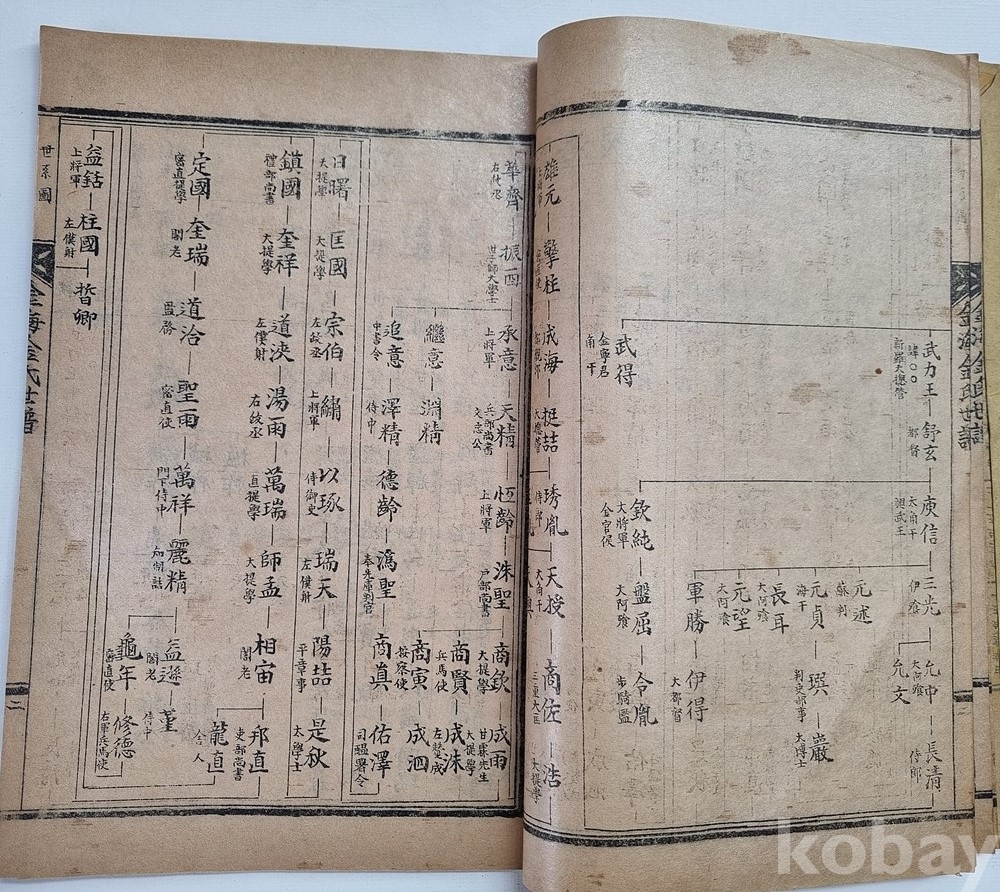 金海金氏世譜
武力王
諱〇〇
新羅大摠管
舒玄
都督
庾信
太角干
興武王
三光
伊飡
允中
大阿飡
長清
侍郎
允文
元述
蘇判
元貞
海干
長耳
大阿飡
元望
大阿飡
與
判吏部事
巖
大博士
軍勝
伊得
大都督
欽純
大將軍
金官侯
盤屈
大阿飡
令胤
步騎監
武得
金寧君
南干
雄元
擎柱
成海
挺喆
琇胤
侍郎
天授
大角干
商佐
三重大匡
浩
大提學
華齊
右代丞
振西
世子師大學士
承意
上將軍
天精
兵部尚書
文忠公
恒齡
上將軍
洙聖
戶部尚書
商欽
大提學
成雨
甘霖先生
大提學
商賢
兵馬使
成洙
左贊成
商寅
按察使
成泗
繼意
淵精
追意
中書令
澤精
侍中
德齡
潙聖
奉先庫判官
商眞
佑澤
司醞署令
日曙
大提學
匡國
大提學
宗伯
左政丞
繡
上將軍
以琢
侍御史
瑞天
左僕射
陽喆
平章事
是秋
太學士
鎭國
禮部尚書
奎祥
大提學
道浹
左僕射
湯雨
右政丞
萬瑞
直提學
師孟
大提學
相宙
閣老
邦直
吏部尚書
龍直
舍人
定國
密直提學
奎瑞
閣老
道治
監務
聖雨
密直使
萬祥
門下侍中
麗精
知制誥
益遜
閣老
堇
侍中
龜年
密直使
修德
右軍兵馬使
益銛
上將軍
柱國
左僕射
晢卿
世系圖
金海金氏世譜
二
kobay